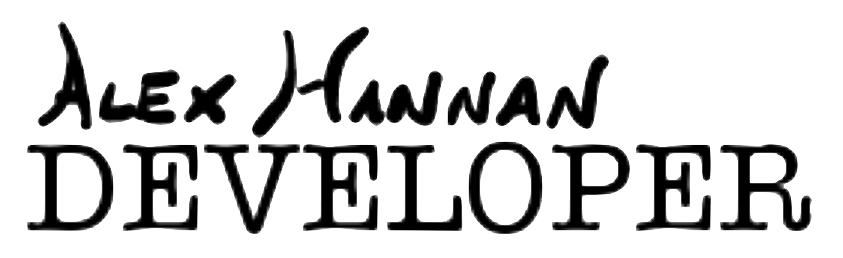 ALEX HANNAN
DEVELOPER